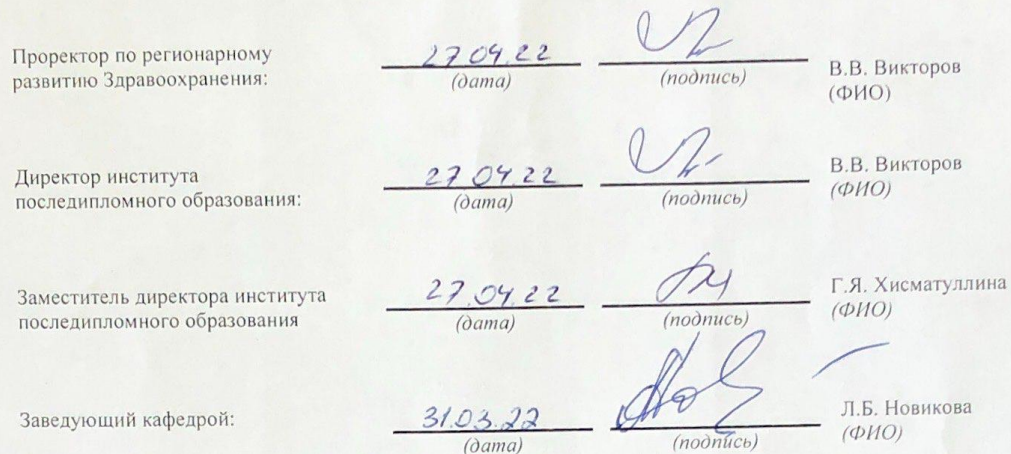 Проректор по регионарному
развитию Здравоохранения:
27.04.22
(дата)
(подпись)
В.В. Викторов
(ФИО)
Директор института
последипломного образования:
27.04.22
(дата)
(подпись)
В.В. Викторов
(ФИО)
Заместитель директора института
последипломного образования
27.04.22
(дата)
(подпись)
Г.Я. Хисматуллина
(ФИО)
Заведующий кафедрой:
31.03.22
(дата)
(подпись)
Л.Б. Новикова
(ФИО)